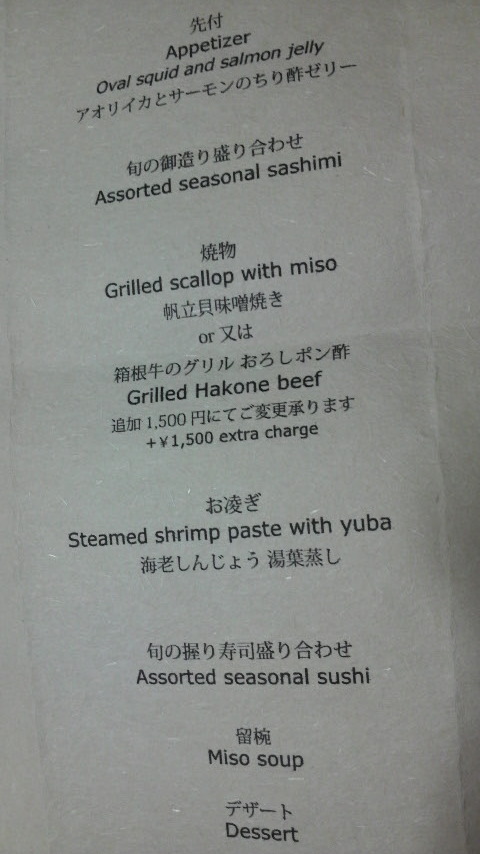 先付
Appetizer
Oval squid and salmon jelly
アオリイカとサーモンのちり酢ゼリー
旬の御造り盛り合わせ
Assorted seasonal sashimi
焼物
Grilled scallop with miso
帆立貝味噌焼き
or 又は
箱根牛のグリル おろしポン酢
Grilled Hakone beef
追加 1,500 円にてご変更承ります
+￥1,500 extra charge
お凌ぎ
Steamed shrimp paste with yuba
海老しんじょう 湯葉蒸し
旬の握り寿司盛り合わせ
Assorted seasonal sushi
留椀
Miso soup
デザート
Dessert